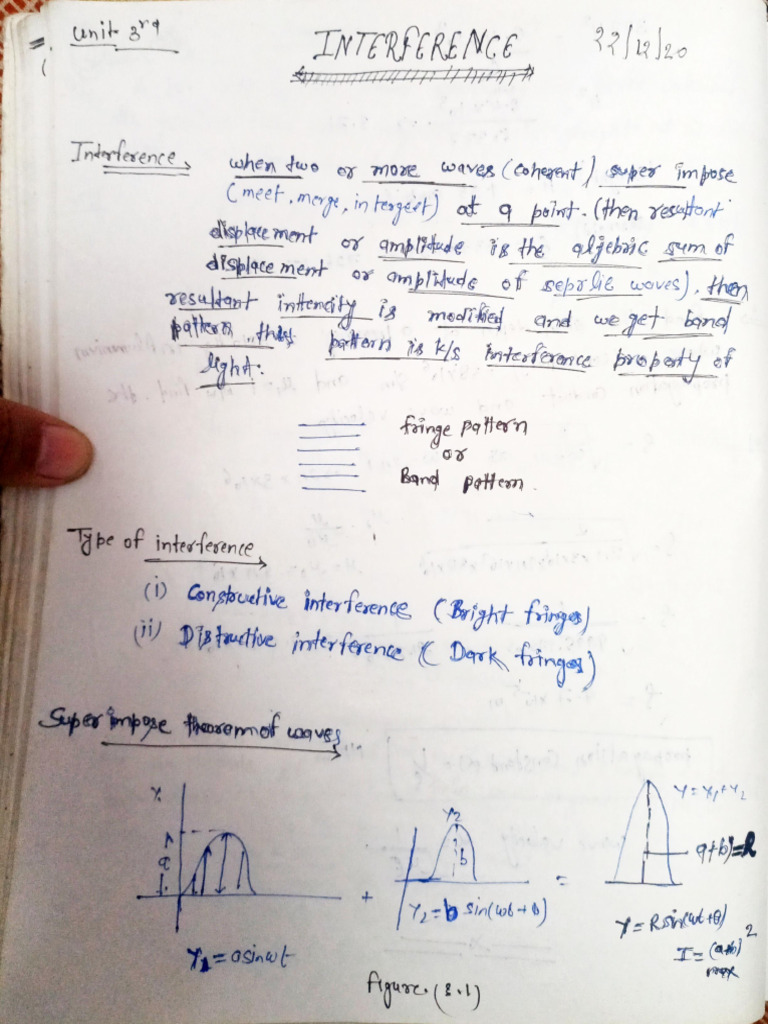 Unit 3rd
INTERFERENCE
22/12/20
Interference
when two or more waves (coherent) super impose
(meet, merge, intergeist) at a point. (then resultant
displacement or amplitude is the algebric sum of
displacement or amplitude of seprlic waves), then
resultant inttencity is modified and we get band
pattern this pattern is k/s interference property of
light.
fringe pattern
or
Band pattern.
Type of interference
(i) Constructive interference (Bright fringes)
(ii) Distructive interference (Dark fringes)
Super impose theorem of waves
Y1
a
Y1 = a sin wt
+
Y2
b
Y2 = b sin(wt + θ)
=
Y = Y1 + Y2
a+b) = R
Y = R sin(wt + θ)
I = (a+b)2
max
figure. (3.1)